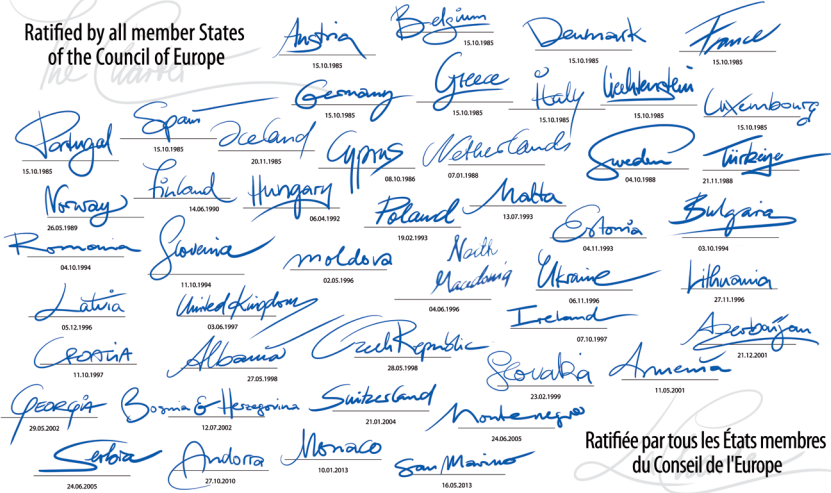 Ratified by all member States
of the Council of Europe
The Charter
Austria
15.10.1985
Belgium
15.10.1985
Denmark
15.10.1985
France
15.10.1985
Germany
15.10.1985
Greece
15.10.1985
Italy
15.10.1985
Liechtenstein
15.10.1985
Luxembourg
15.10.1985
Portugal
15.10.1985
Spain
15.10.1985
Iceland
20.11.1985
Cyprus
08.10.1986
Netherlands
07.01.1988
Sweden
04.10.1988
Türkiye
21.11.1988
Norway
26.05.1989
Finland
14.06.1990
Hungary
06.04.1992
Poland
19.02.1993
Malta
13.07.1993
Estonia
04.11.1993
Bulgaria
03.10.1994
Romania
04.10.1994
Slovenia
11.10.1994
Moldova
02.05.1996
North
Macedonia
04.06.1996
Ukraine
06.11.1996
Lithuania
27.11.1996
Latvia
05.12.1996
United Kingdom
03.06.1997
Ireland
07.10.1997
Azerbaijan
21.12.2001
Croatia
11.10.1997
Albania
27.05.1998
Czech Republic
28.05.1998
Slovakia
23.02.1999
Armenia
11.05.2001
Georgia
29.05.2002
Bosnia & Herzegovina
12.07.2002
Switzerland
21.01.2004
Montenegro
24.06.2005
Serbia
24.06.2005
Andorra
27.10.2010
Monaco
10.01.2013
San Marino
16.05.2013
Ratifiée par tous les États membres
du Conseil de l'Europe